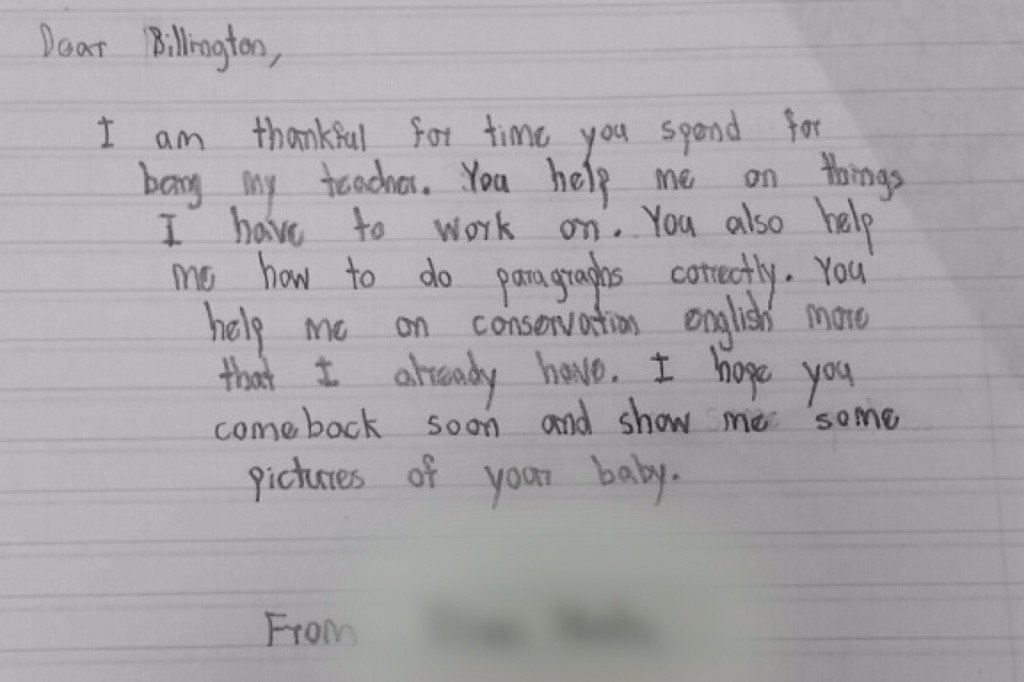 Dear Billington,
I am thankful for time you spend for
being my teacher. You help me on things
I have to work on. You also help
me how to do paragraphs correctly. You
help me on conservation english more
that I already have. I hope you
comeback soon and show me some
pictures of your baby.
From